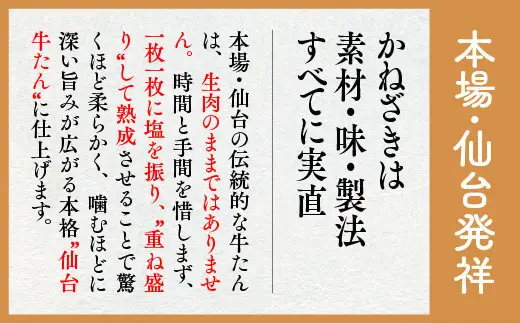 本場・仙台発祥
かねざきは
素材・味・製法
すべてに実直
本場・仙台の伝統的な牛たん
は、生肉のままではありませ
ん。時間と手間を惜しまず、
一枚一枚に塩を振り、”重ね盛
り“して熟成させることで驚
くほど柔らかく、噛むほどに
深い旨みが広がる本格”仙台
牛たん“に仕上げます。